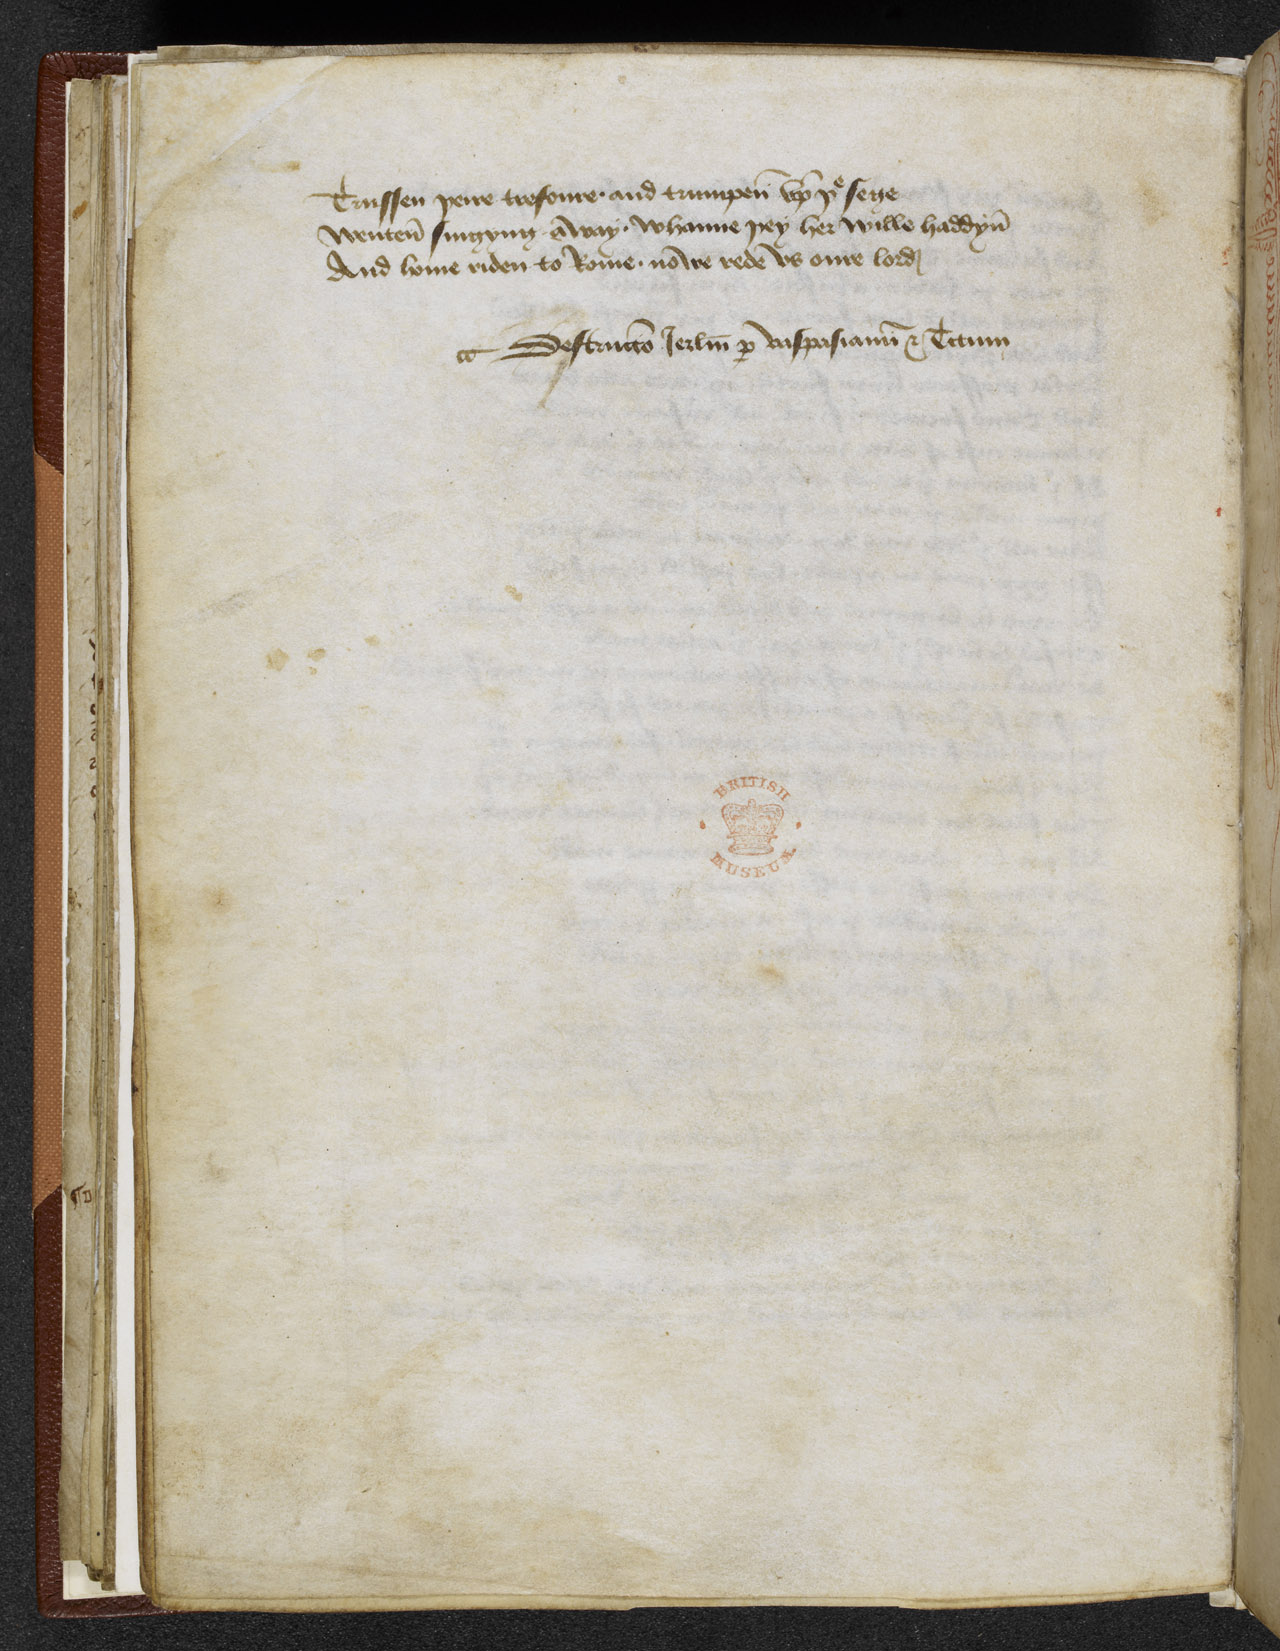 Trussen þere tresoure · and trumpen̄ vp̄ þe sege
Wenten̄ singyng away · whanne þey her wille haddyn̄
And home riden to Rome · nowe rede vs oure lord
Destruccō Jerl̄m p̱ vaspasianū & Titum
BRITISH
MUSEUM